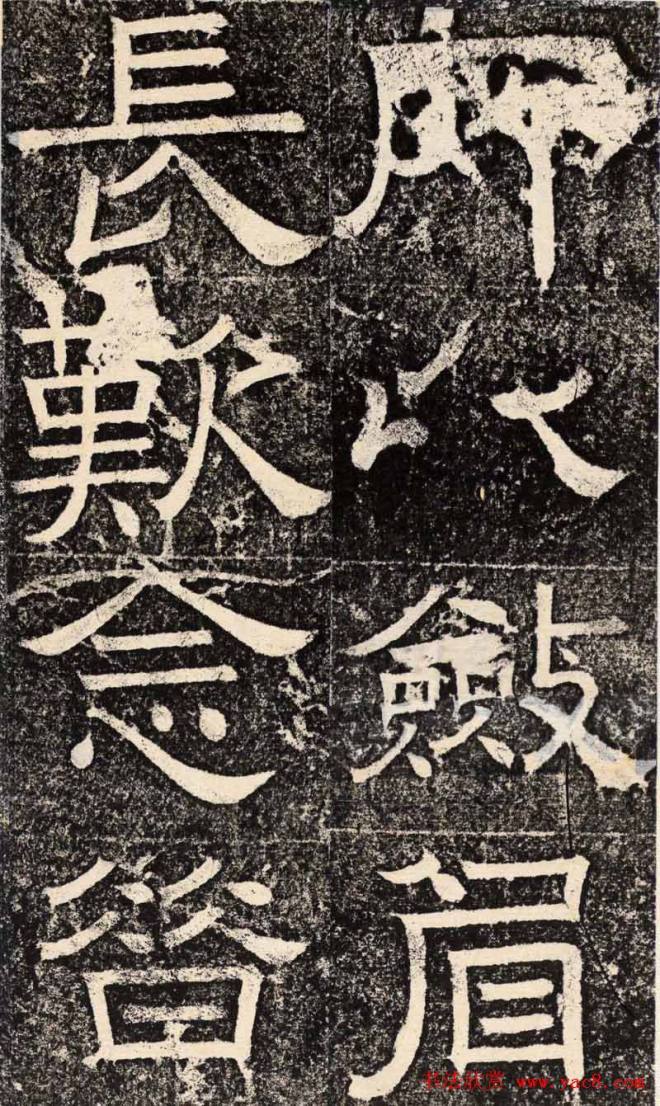 所以斂眉
長歎念昔
书法欣赏 www.yac8.com